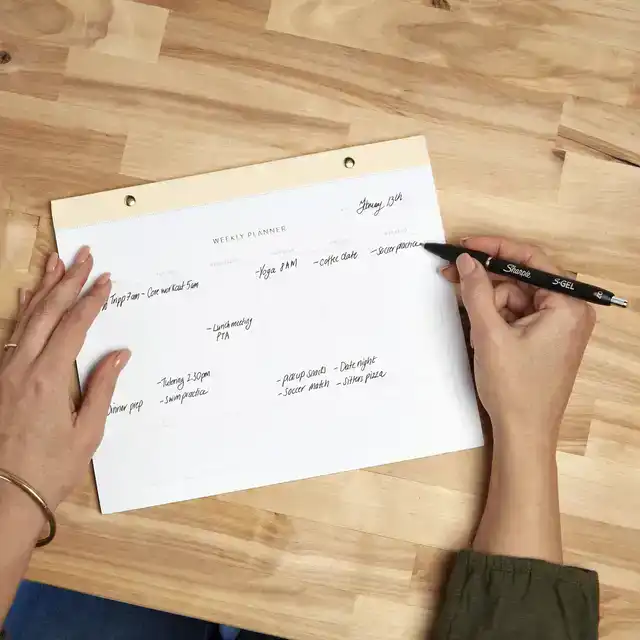 February 13th
WEEKLY PLANNER
- Yoga 8AM
- Coffee date
- Soccer practice
Tripp 7am
- Core workout 5am
- Lunch meeting
PTA
- Tutoring 2:30pm
- Swim practice
- pick up snacks
- Soccer match
- Date night
- Sitters pizza
Dinner prep
Sharpie. S·GEL